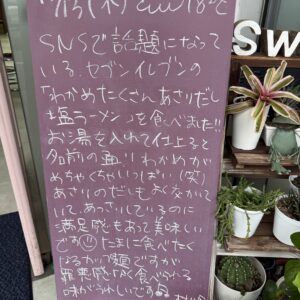 SNSで話題になって
いる、セブンイレブンの
「わかめたくさんあさりだし
塩ラーメン」を食べました!!
お湯を入れて仕上ると
名前の通りわかめが
めちゃくちゃいっぱい!(笑)
あさりのだしもよく効いて
いて、あっさりしているのに
満足感もあって美味しい
です たまに食べたく
なるカップ麺ですが
罪悪感なく食べられる
味がうれしいです♪
SW